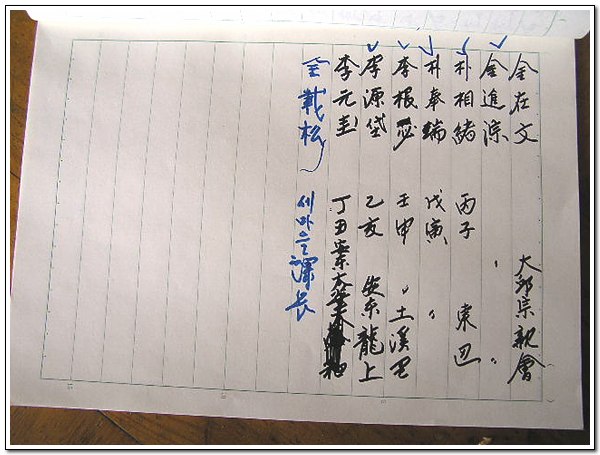 金在文 大邱宗親會
金進淙 〃
朴相緖 丙子 東辺
朴奉端 戊寅 〃
李根 壬申 〃 土溪里
李源岱 乙亥 安東龍上
李元圭 丁丑
金載松 새마을課長